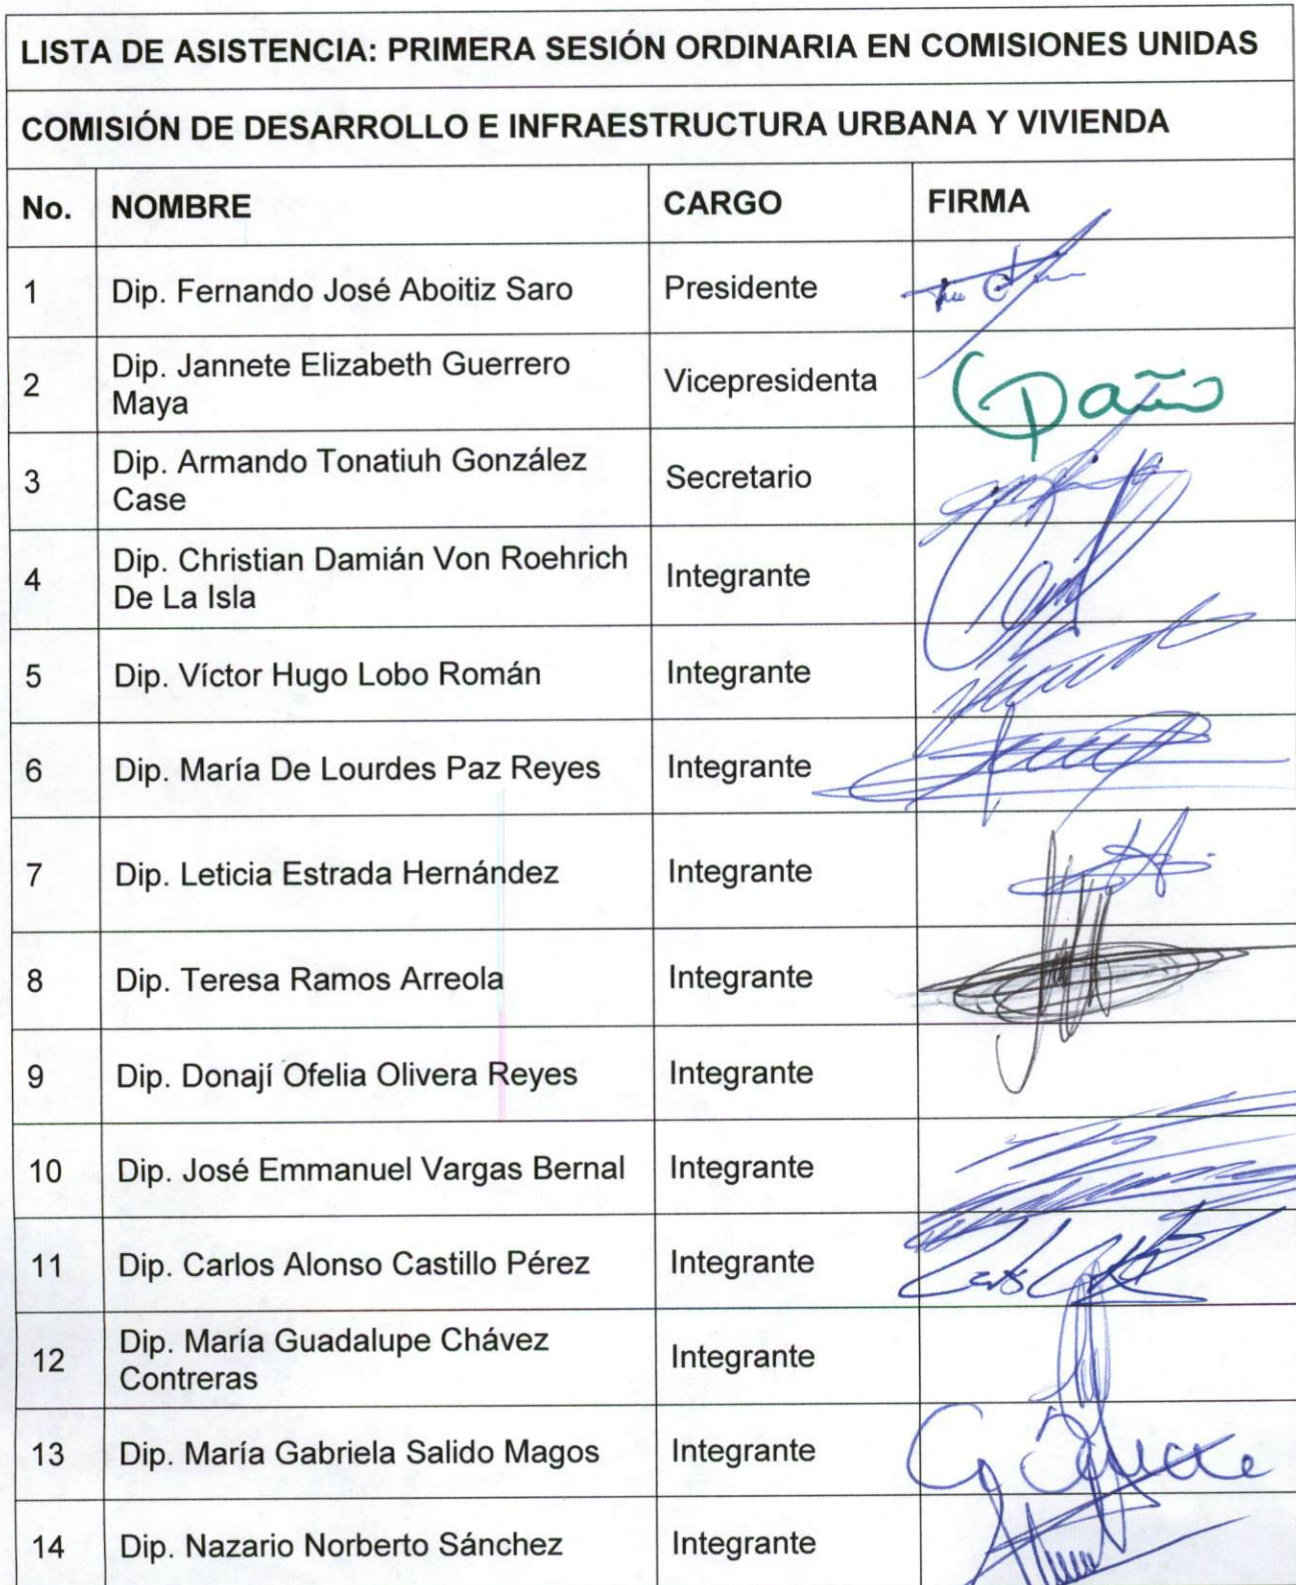 LISTA DE ASISTENCIA: PRIMERA SESIÓN ORDINARIA EN COMISIONES UNIDAS
COMISIÓN DE DESARROLLO E INFRAESTRUCTURA URBANA Y VIVIENDA
No. NOMBRE CARGO FIRMA
1 Dip. Fernando José Aboitiz Saro Presidente
2 Dip. Jannete Elizabeth Guerrero Vicepresidenta
Maya
3 Dip. Armando Tonatiuh González Secretario
Case
4 Dip. Christian Damián Von Roehrich Integrante
De La Isla
5 Dip. Víctor Hugo Lobo Román Integrante
6 Dip. María De Lourdes Paz Reyes Integrante
7 Dip. Leticia Estrada Hernández Integrante
8 Dip. Teresa Ramos Arreola Integrante
9 Dip. Donají Ofelia Olivera Reyes Integrante
10 Dip. José Emmanuel Vargas Bernal Integrante
11 Dip. Carlos Alonso Castillo Pérez Integrante
12 Dip. María Guadalupe Chávez Integrante
Contreras
13 Dip. María Gabriela Salido Magos Integrante
14 Dip. Nazario Norberto Sánchez Integrante